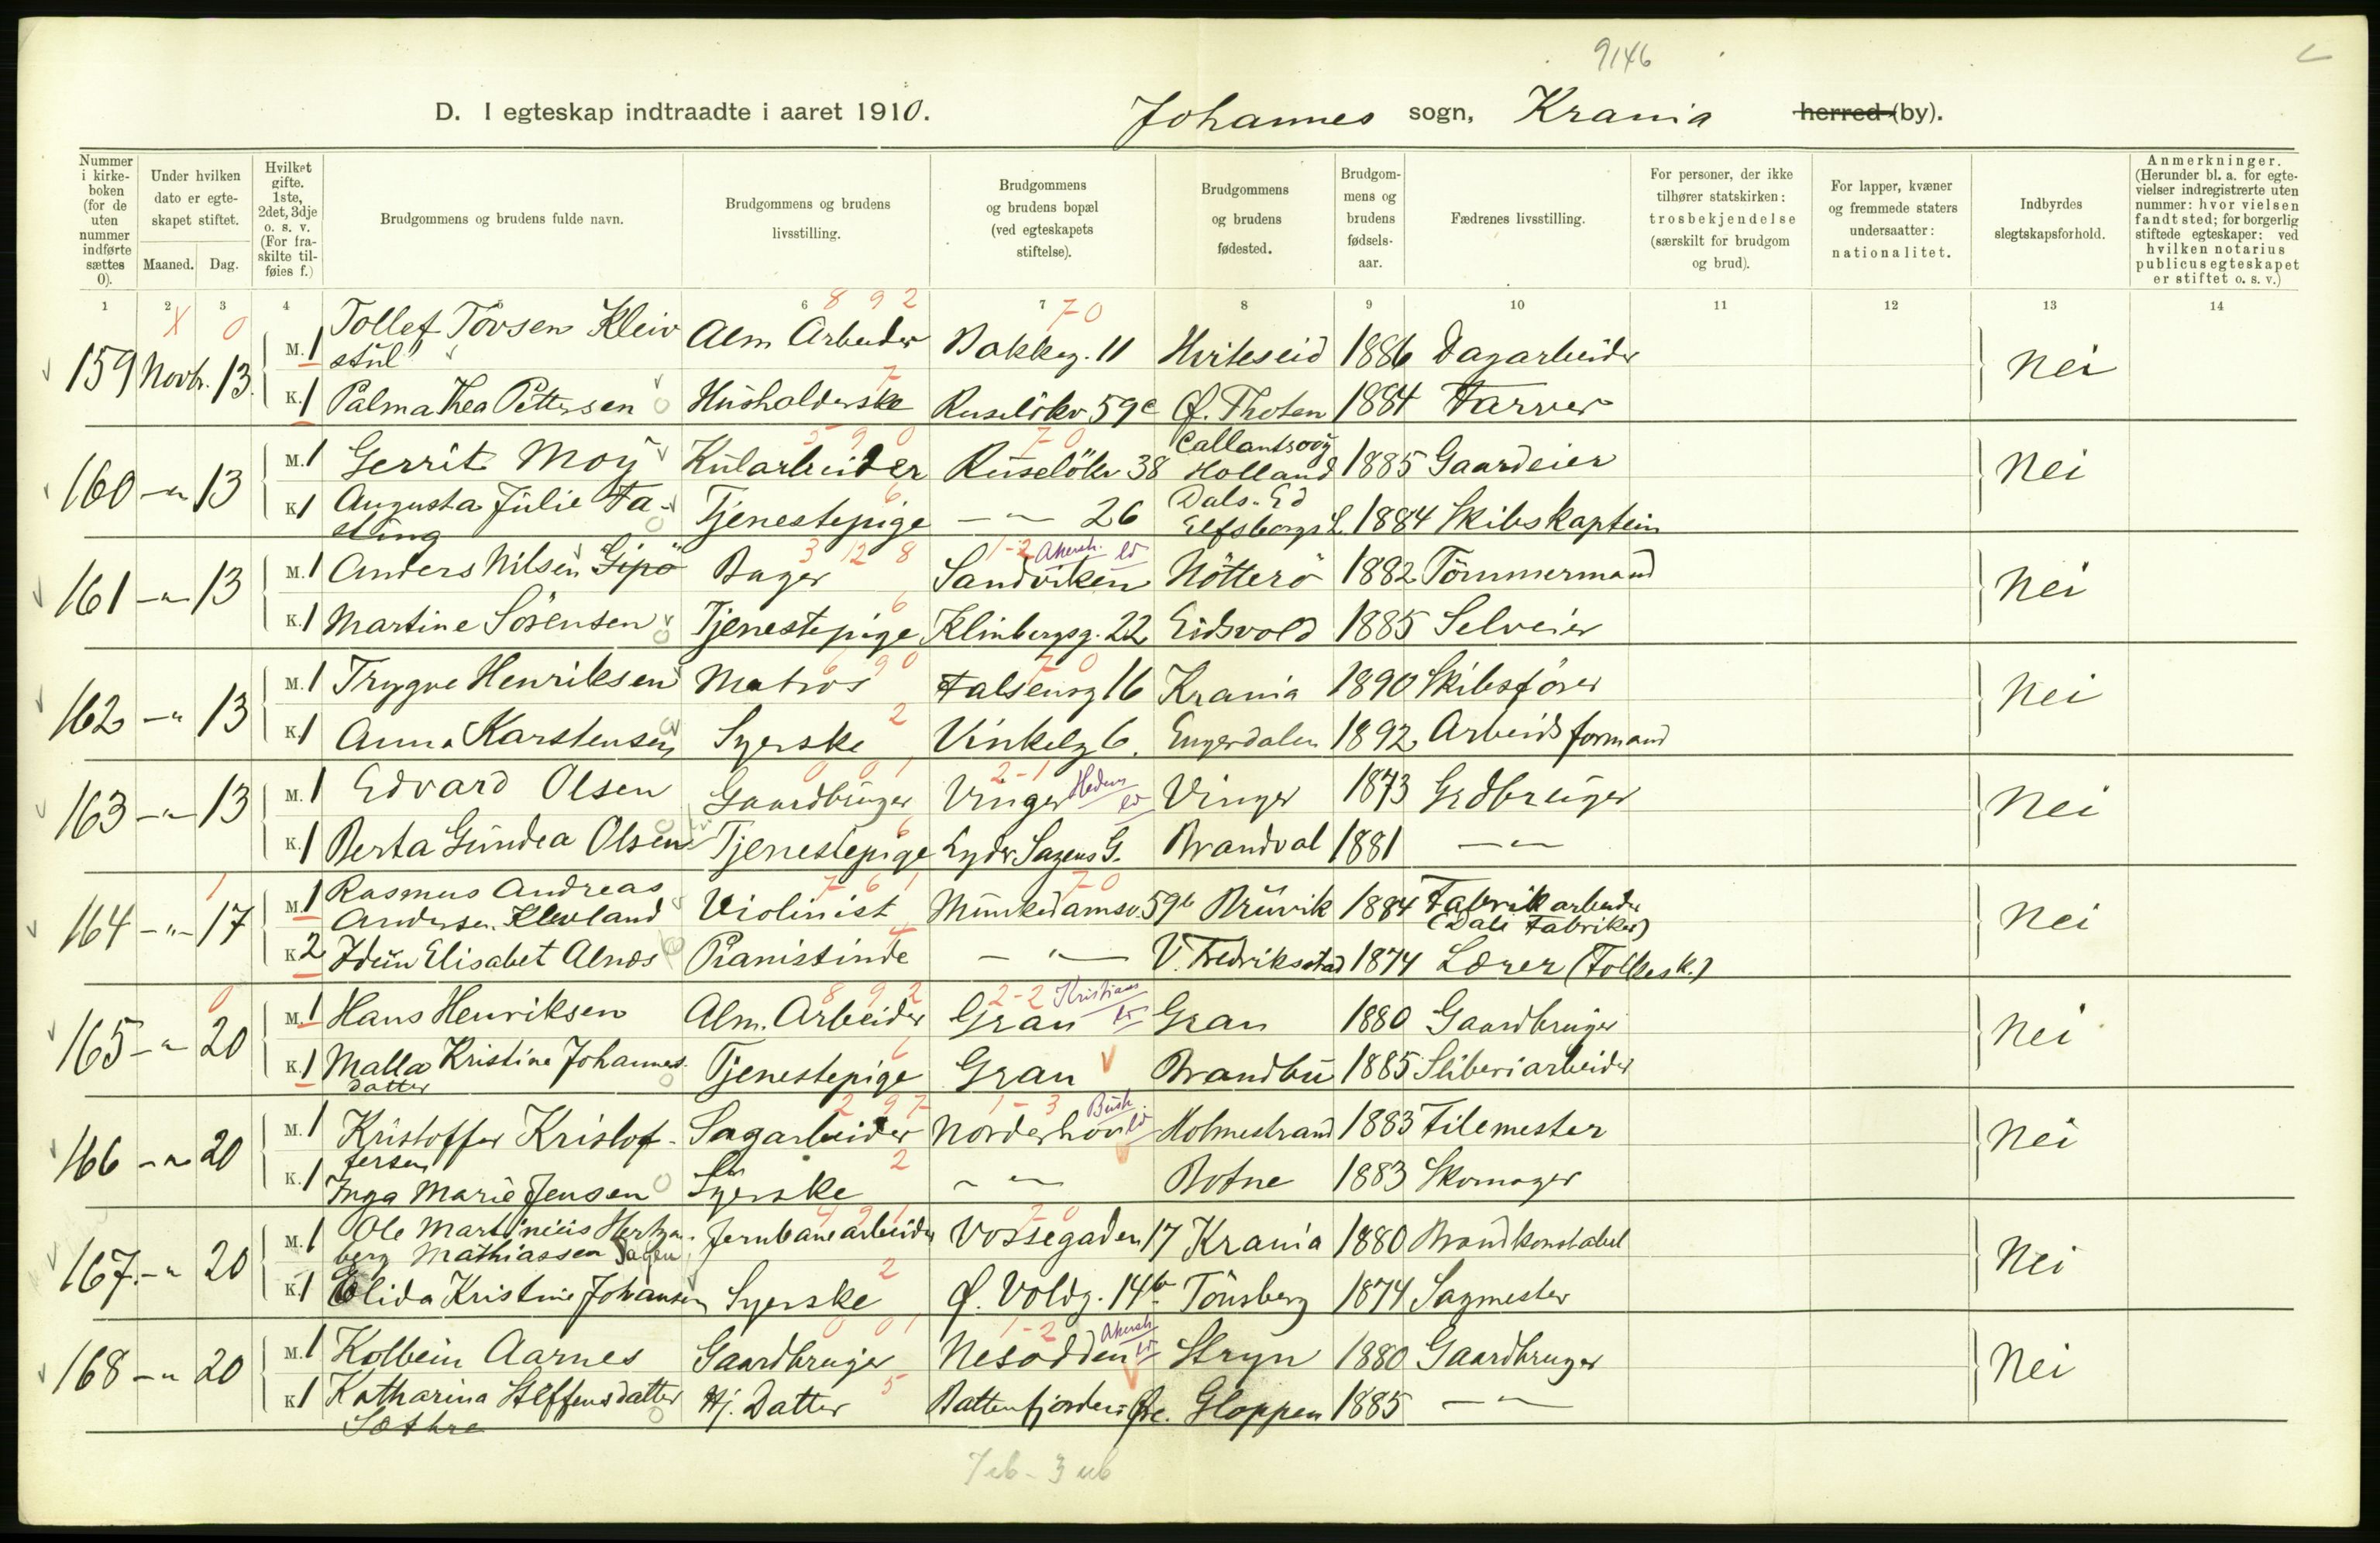 9146
D. I egteskap indtraadte i aaret 1910. Johannes sogn, Krania herred (by).
Nummer i kirkeboken (for de uten nummer indførte sættes 0).
Under hvilken dato er egteskapet stiftet.
Maaned. Dag.
Hvilket gifte. 1ste, 2det, 3dje o. s. v. (For fraskilte tilføies f.)
Brudgommens og brudens fulde navn.
Brudgommens og brudens livsstilling.
Brudgommens og brudens bopæl (ved egteskapets stiftelse).
Brudgommens og brudens fødested.
Brudgommens og brudens fødselsaar.
Fædrenes livsstilling.
For personer, der ikke tilhører statskirken: trosbekjendelse (særskilt for brudgom og brud).
For lapper, kvæner og fremmede staters undersaatter: nationalitet.
Indbyrdes slegtskapsforhold.
Anmerkninger. (Herunder bl. a. for egtevielser indregistrerte uten nummer: hvor vielsen fandt sted; for borgerlig stiftede egteskaper: ved hvilken notarius publicus egteskapet er stiftet o. s. v.)
1 2 3 4 6 7 8 9 10 11 12 13 14
X 0 8 9 2 7 0
159 Novbr. 13. M. 1 Tollef Tovsen Kleivstul Alm Arbeider Bakkeg. 11 Hviteseid 1886 Dagarbeider Nei
7
K. 1 Palma Thea Pettersen Husholderske Ruseløkv 59c Ø. Thoten 1884 Farver
5 9 0 7 0
160 -"- 13 M. 1 Gerrit Moy Kularbeider Ruseløkv 38 Callantsoog Holland 1885 Gaardeier Nei
6
K. 1 Augusta Julie Fasting Tjenestepige -"- 26 Dals-Ed Elfsborgs L. 1884 Skibskaptein
3 12 8 1-2 Akersh. ld
161 -"- 13 M. 1 Anders Nilsen Gipö Bager Sandviken Nötterö 1882 Tömmermand Nei
6
K. 1 Martine Sörensen Tjenestepige Klinbergsg. 22 Eidsvold 1885 Selveier
6 9 0 7 0
162 -"- 13 M. 1 Trygve Henriksen Matros Falsensg 16 Krania 1890 Skibsfører Nei
2
K. 1 Anna Karstensen Syerske Vinkelg 6. Engerdalen 1892 Arbeidsformand
0 0 1 2-1 Hedem ld
163 -"- 13 M. 1 Edvard Olsen Gaardbruger Vinger Vinger 1873 Grdbruger Nei
6
K. 1 Berta Gundea Olsen Tjenestepige Lyder Sagens G. Brandval 1881 -"-
1 7 6 1 7 0
164 -"- 17 M. 1 Rasmus Andreas Andersen Kleveland Violinist Munkedamsv. 59b Bruvik 1884 Fabrikarbeider (Dale Fabriker) Nei
4
K. 2 Idun Elisabet Alnæs Pianistinde -"- V. Fredrikstad 1874 Lærer (Folkesk.)
0 8 9 2 2-2 Kristians
165 -"- 20 M. 1 Hans Henriksen Alm. Arbeider Gran Gran 1880 Gaardbruger Nei
K. 1 Malla Kristine Johannesdatter Tjenestepige Gran Brandbu 1885 Sliberiarbeider
2 9 7 1-3 Busk. ld
166 -"- 20 M. 1 Kristoffer Kristoffersen Sagarbeider Norderhov Holmestrand 1883 Filemester Nei
2
K. 1 Inga Marie Jensen Syerske -"- Botne 1883 Skomager
4 9 1 7 0
167. -"- 20 M. 1 Ole Martinius Hertzberg Mathiassen Sagen Jernbanearbeider Vossegaden 17 Krania 1880 Brandkonstabel Nei
2
K. 1 Elida Kristine Johansen Syerske Ø. Voldg. 14b Tönsberg 1874 Sagmester
0 0 1 1-2 Akersh ld
168 -"- 20 M. 1 Kolbein Aarnes Gaardbruger Nesodden Stryn 1880 Gaardbruger Nei
5
K. 1 Katharina Steffensdatter Sæthre Hj. Datter Battenfjordens Øre. Gloppen 1885 -"-
7 eb - 3 ub